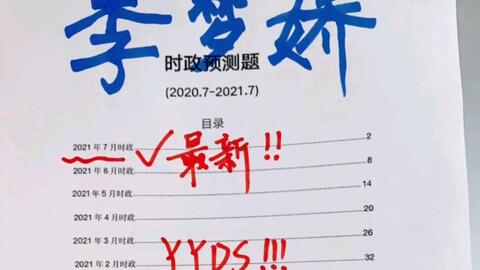 李梦娇
时政预测题
(2020.7-2021.7)
目录
2021 年 7 月时政 2
✓最新!!
2021 年 6 月时政 8
2021 年 5 月时政 14
2021 年 4 月时政 20
2021 年 3 月时政 26
YYDS!!!
2021 年 2 月时政 32